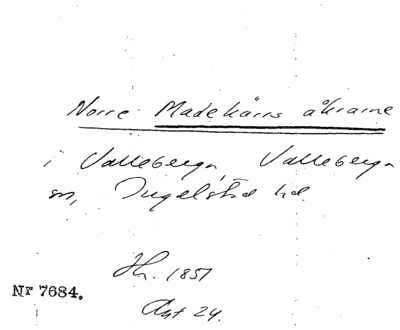 Norre Madekärrs åkrarne
i Valleberga, Valleberga
sn, Ingelstad hd.
Hr. 1851
Nr 7684.
Akt 24.